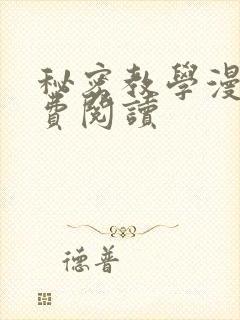 秘密教學漫
費閱讀
德普